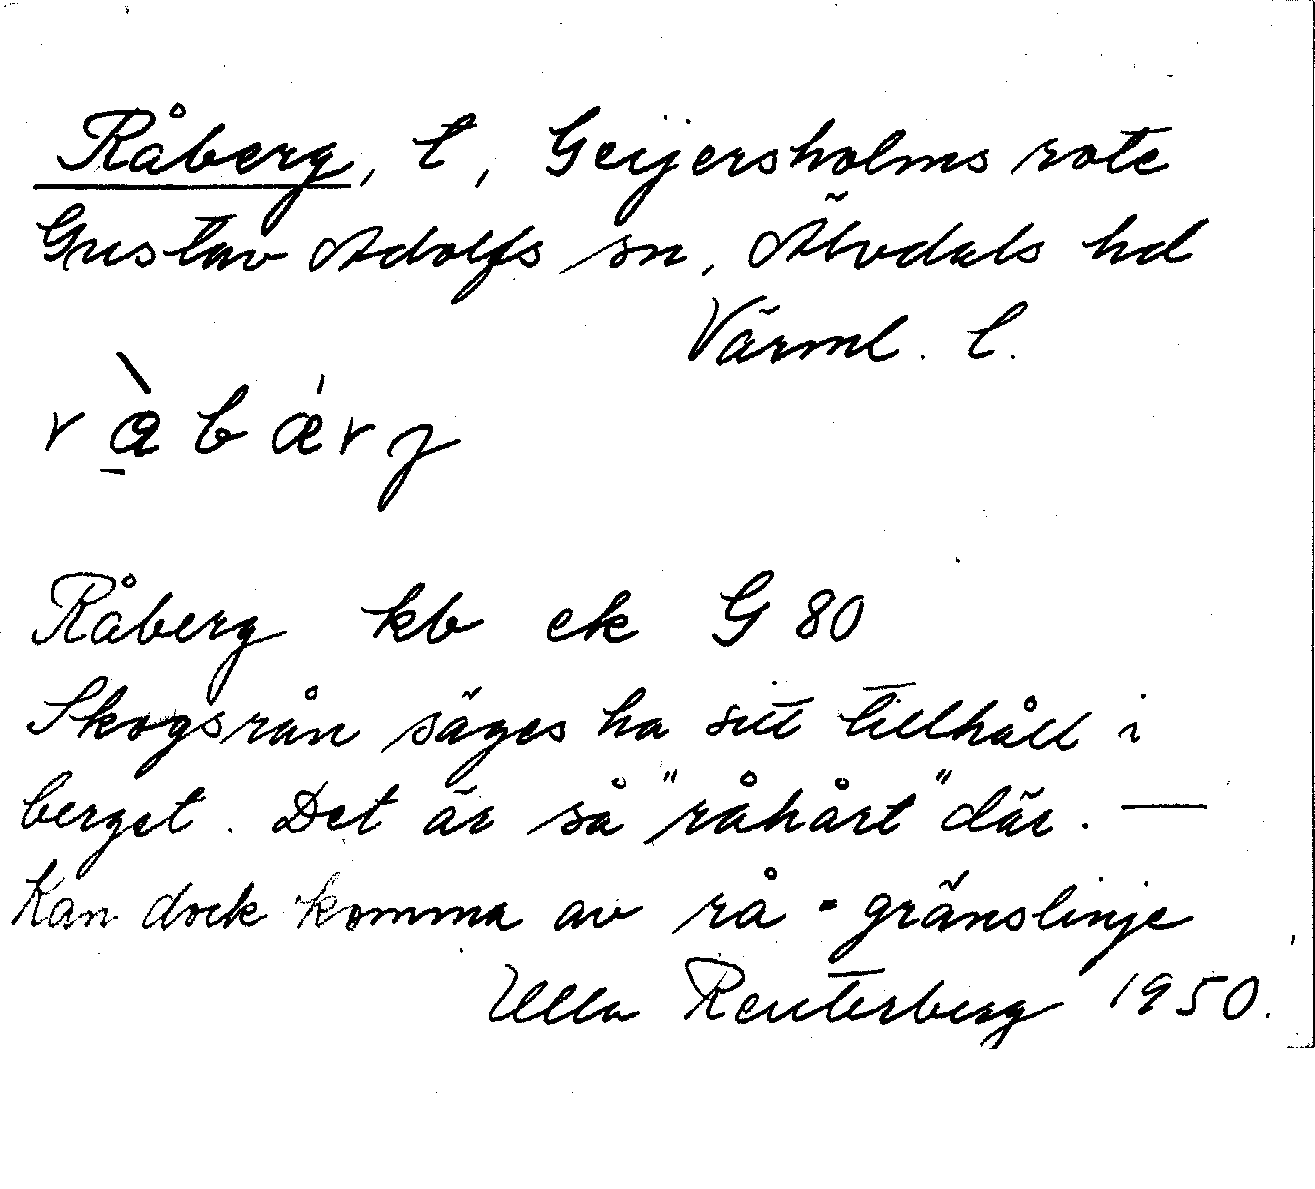 Råberg, t, Geijersholms rote
Gustav Adolfs sn, Älvdals hd
Värml. l.
rå̀bǽrj
Råberg kb ek G 80
Skogsrån säges ha sitt tillhåll i
berget. Det är så "råhårt" där. —
Kan dock komma av rå = gränslinje
Ulla Reuterberg 1950.